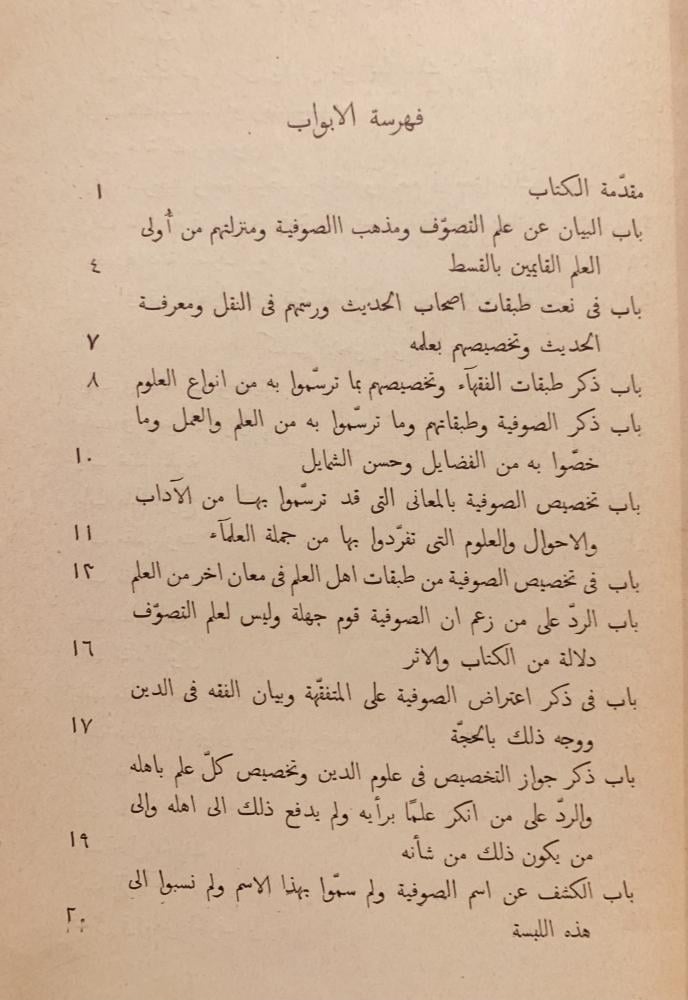 فهرسة الابواب
مقدّمة الكتاب ١
باب البيان عن علم التصوّف ومذهب االصوفية ومنزلتهم من أولى
العلم القايمين بالقسط ٤
باب فى نعت طبقات اصحاب الحديث ورسمهم فى النقل ومعرفة
الحديث وتخصيصهم بعلمه ٧
باب ذكر طبقات الفقهآء وتخصيصهم بما ترسّموا به من انواع العلوم ٨
باب ذكر الصوفية وطبقاتهم وما ترسّموا به من العلم والعمل وما
خصّوا به من الفضايل وحسن الشمايل ١٠
باب تخصيص الصوفية بالمعانى التى قد ترسّموا بها من الآداب
والاحوال والعلوم التى تفرّدوا بها من جملة العلمآء ١١
باب فى تخصيص الصوفية من طبقات اهل العلم فى معان اخر من العلم ١٢
باب الردّ على من زعم ان الصوفية قوم جهلة وليس لعلم التصوّف
دلالة من الكتاب والاثر ١٦
باب فى ذكر اعتراض الصوفية على المتفقّهة وبيان الفقه فى الدين
ووجه ذلك بالحجّة ١٧
باب ذكر جواز التخصيص فى علوم الدين وتخصيص كلّ علم باهله
والردّ على من انكر علمًا برأيه ولم يدفع ذلك الى اهله والى
من يكون ذلك من شأنه ١٩
باب الكشف عن اسم الصوفية ولم سمّوا بهذا الاسم ولم نسبوا الى
هذه اللبسة ٢٠